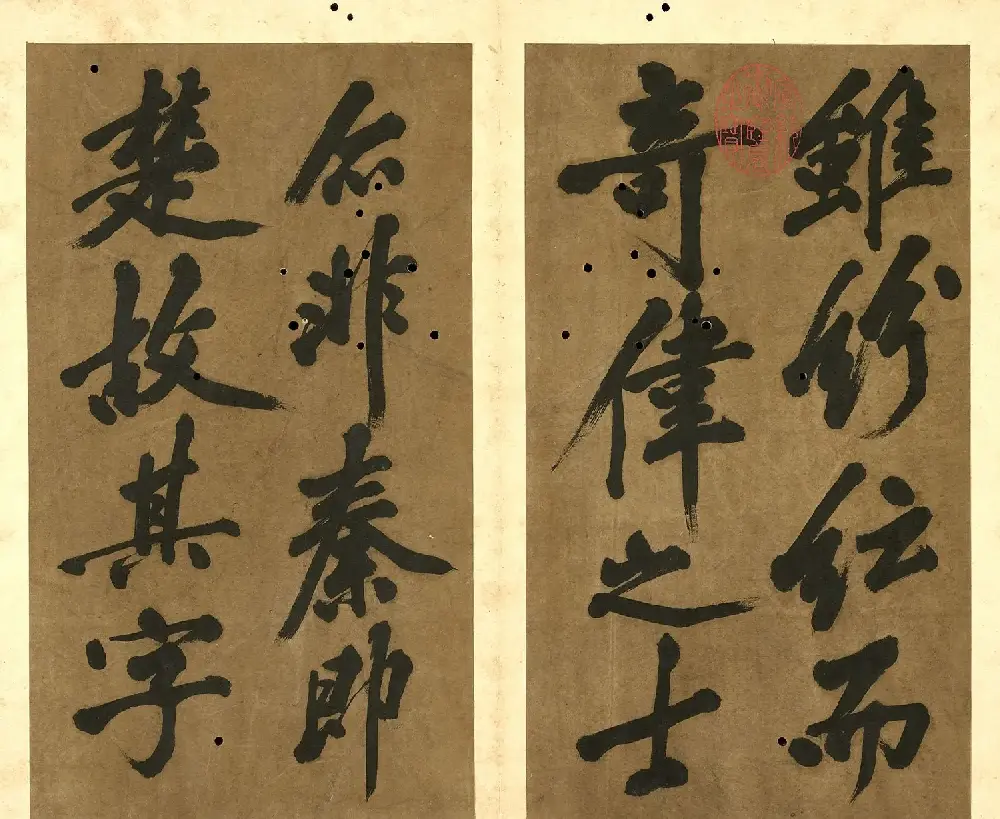 雖紛紜而
奇偉之士
非秦即
楚故其字